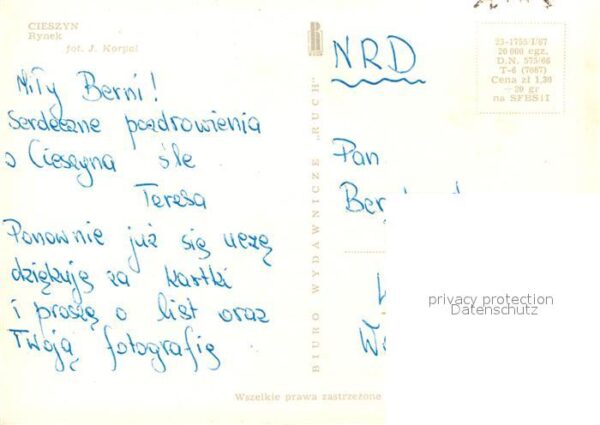 CIESZYN
Rynek
fot. J. Korpal
Miły Berni!
Serdeczne pozdrowienia
z Cieszyna śle
Teresa
Ponownie już się uczę
dziękuję za kartki
i proszę o list oraz
Twoją fotografię
BIURO WYDAWNICZE „RUCH"
Wszelkie prawa zastrzeżone
NRD
23-1755/I/67
20 000 egz.
D.N. 575/66
T-6 (7067)
Cena zł 1,30
+ 20 gr
na SFBSiI
Pan
privacy protection
Datenschutz